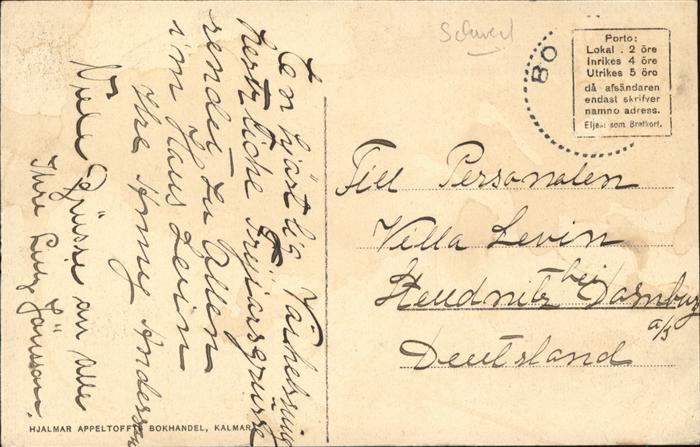 Schwed
BO
Porto:
Lokal . 2 öre
Inrikes 4 öre
Utrikes 5 öre
då afsändaren
endast skrifver
namn o adress.
Eljest som Brefkort.
En hjärtlig Vårhelsning
hertzliche Früjarsgrüsse
sendes zu Allen
im Haus Levin
Ihre Anny Anderson
Viele Grüsse an Alle
Ihre Jönsson.
Till Personalen
Villa Levin
Steudnitz bei Dornburg
a/S
Deutsland
HJALMAR APPELTOFFTS BOKHANDEL, KALMAR